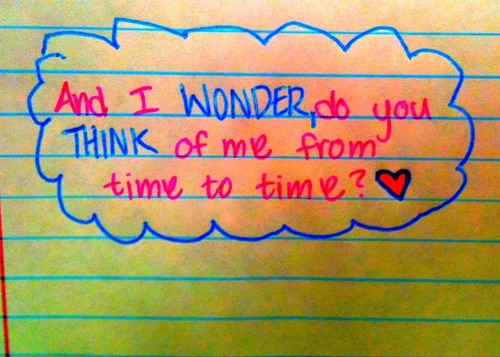 And I WONDER, do you
THINK of me from
time to time?